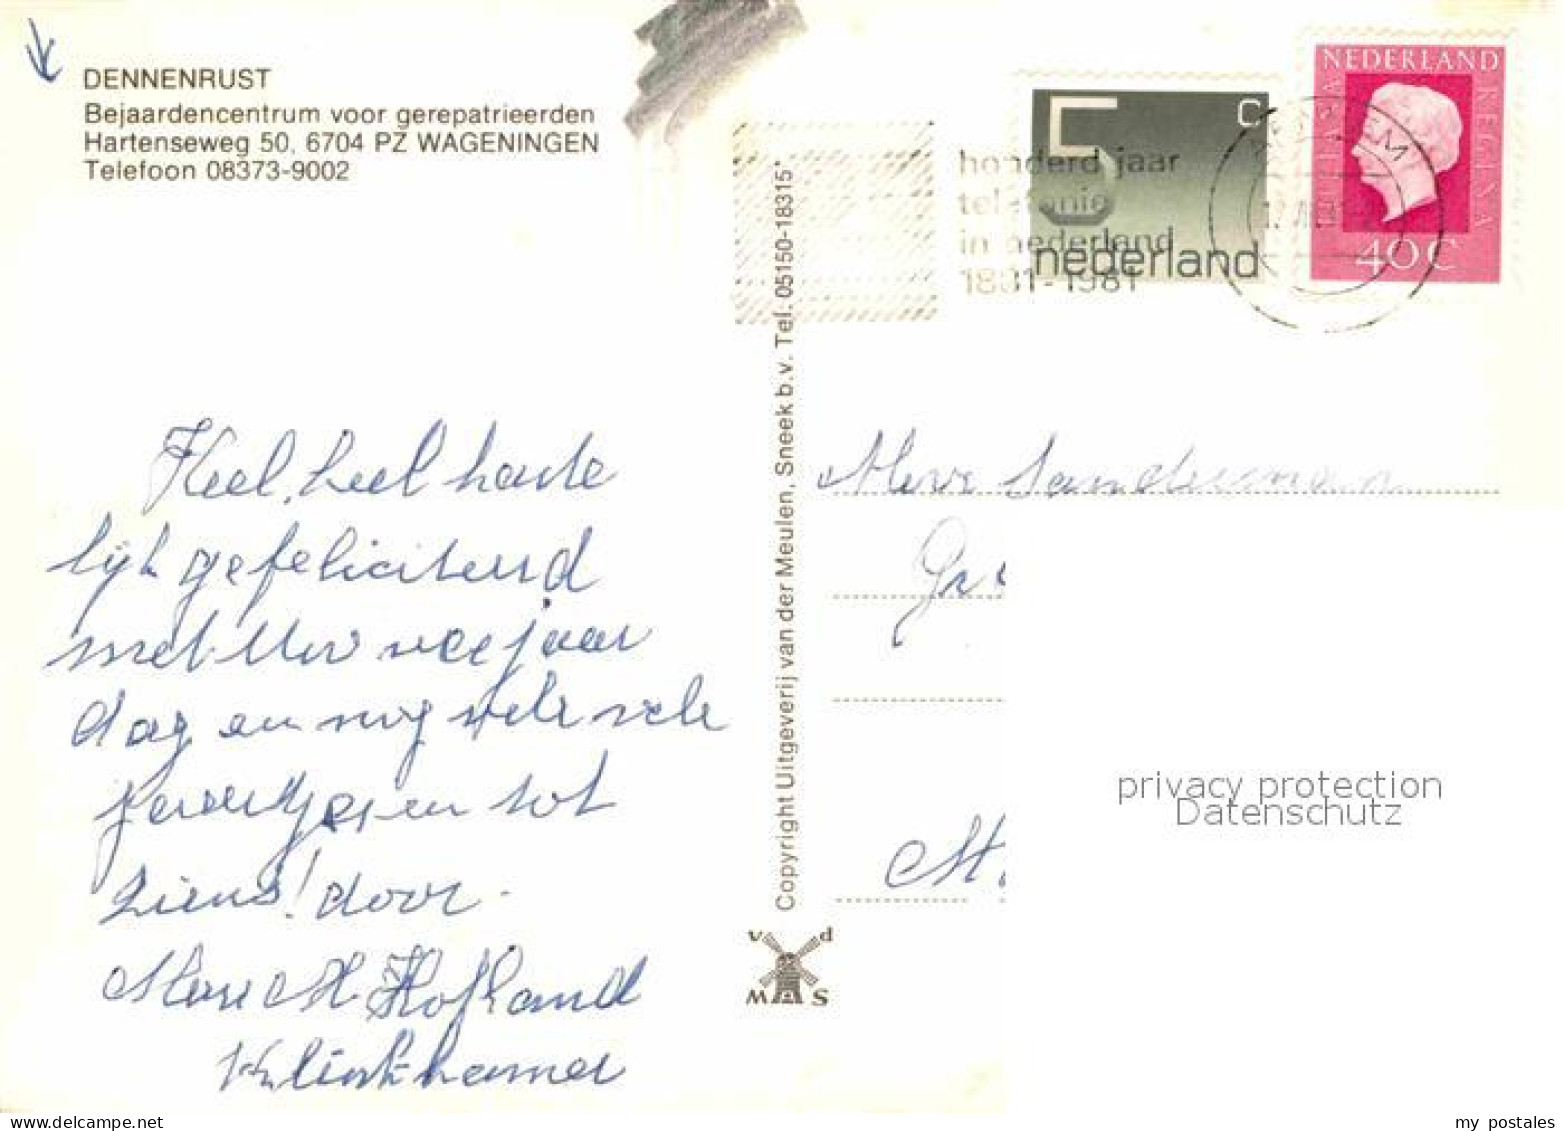 DENNENRUST
Bejaardencentrum voor gerepatrieerden
Hartenseweg 50, 6704 PZ WAGENINGEN
Telefoon 08373-9002
Heel, heel harte
lijk gefeliciteerd
met Uw verjaar
dag en nog vele vele
jaartjes en tot
ziens! door
Mevr M Hofland
Klinkhamer
Copyright Uitgeverij van der Meulen, Sneek b.v. Tel. 05150-18315
v d
M S
honderd jaar
telefonie
in nederland
1881-1981
5 c
nederland
NEDERLAND
JULIANA REGINA
40 C
Mevr
privacy protection
Datenschutz
www.delcampe.net
my_postales